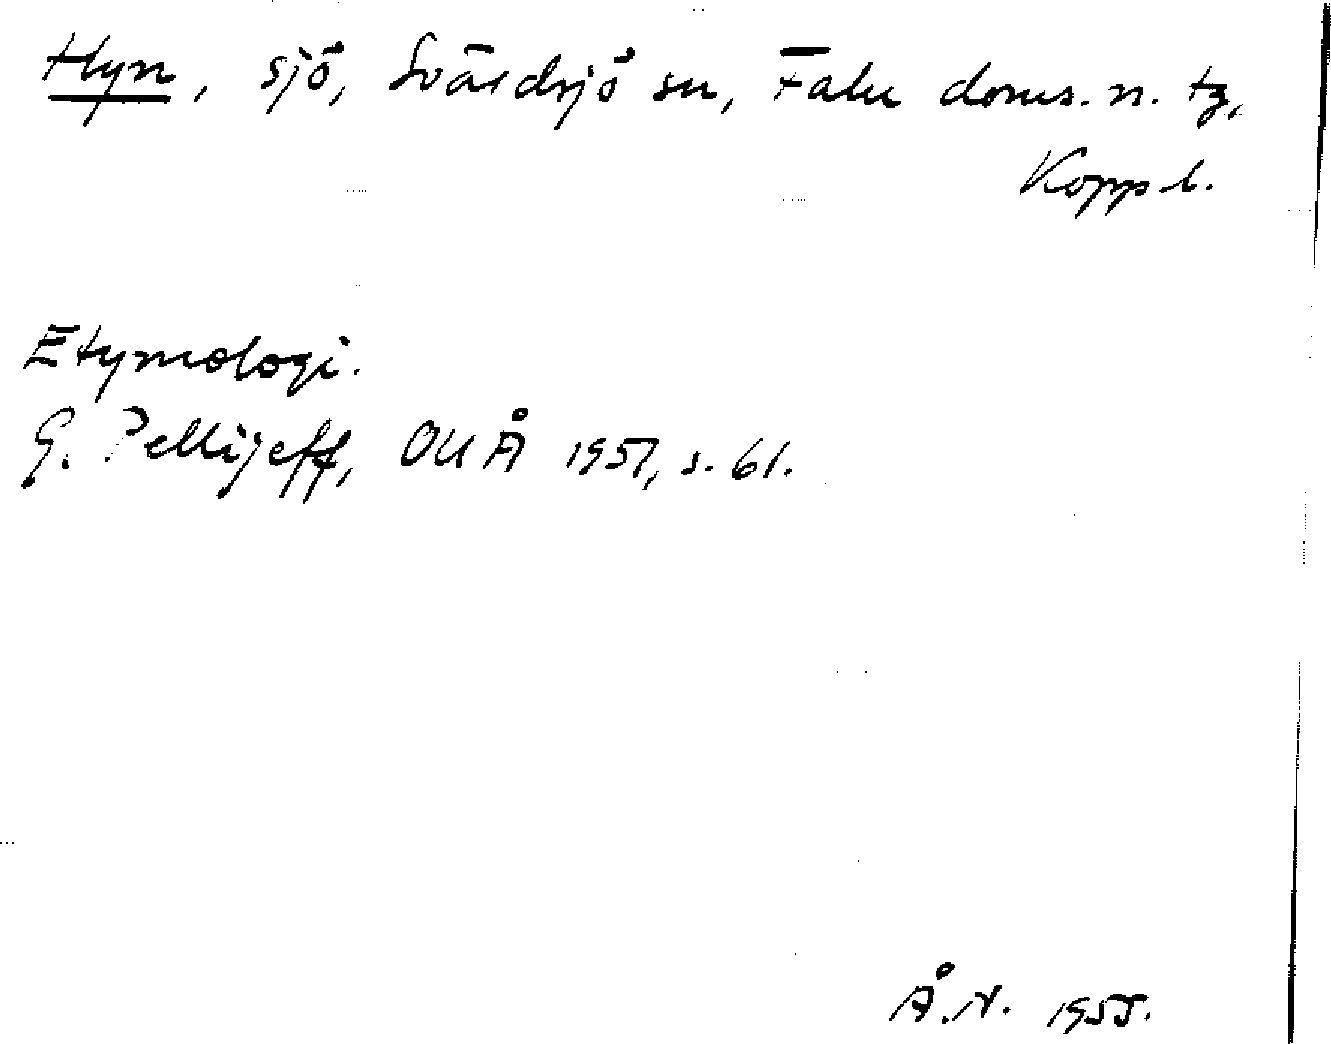 Hyn, sjö, Svärdsjö sn, Falu doms. n. tg,
Koppl.
Etymologi.
G. Pellijeff, OUÅ 1951, s. 61.
Å.N. 1955.